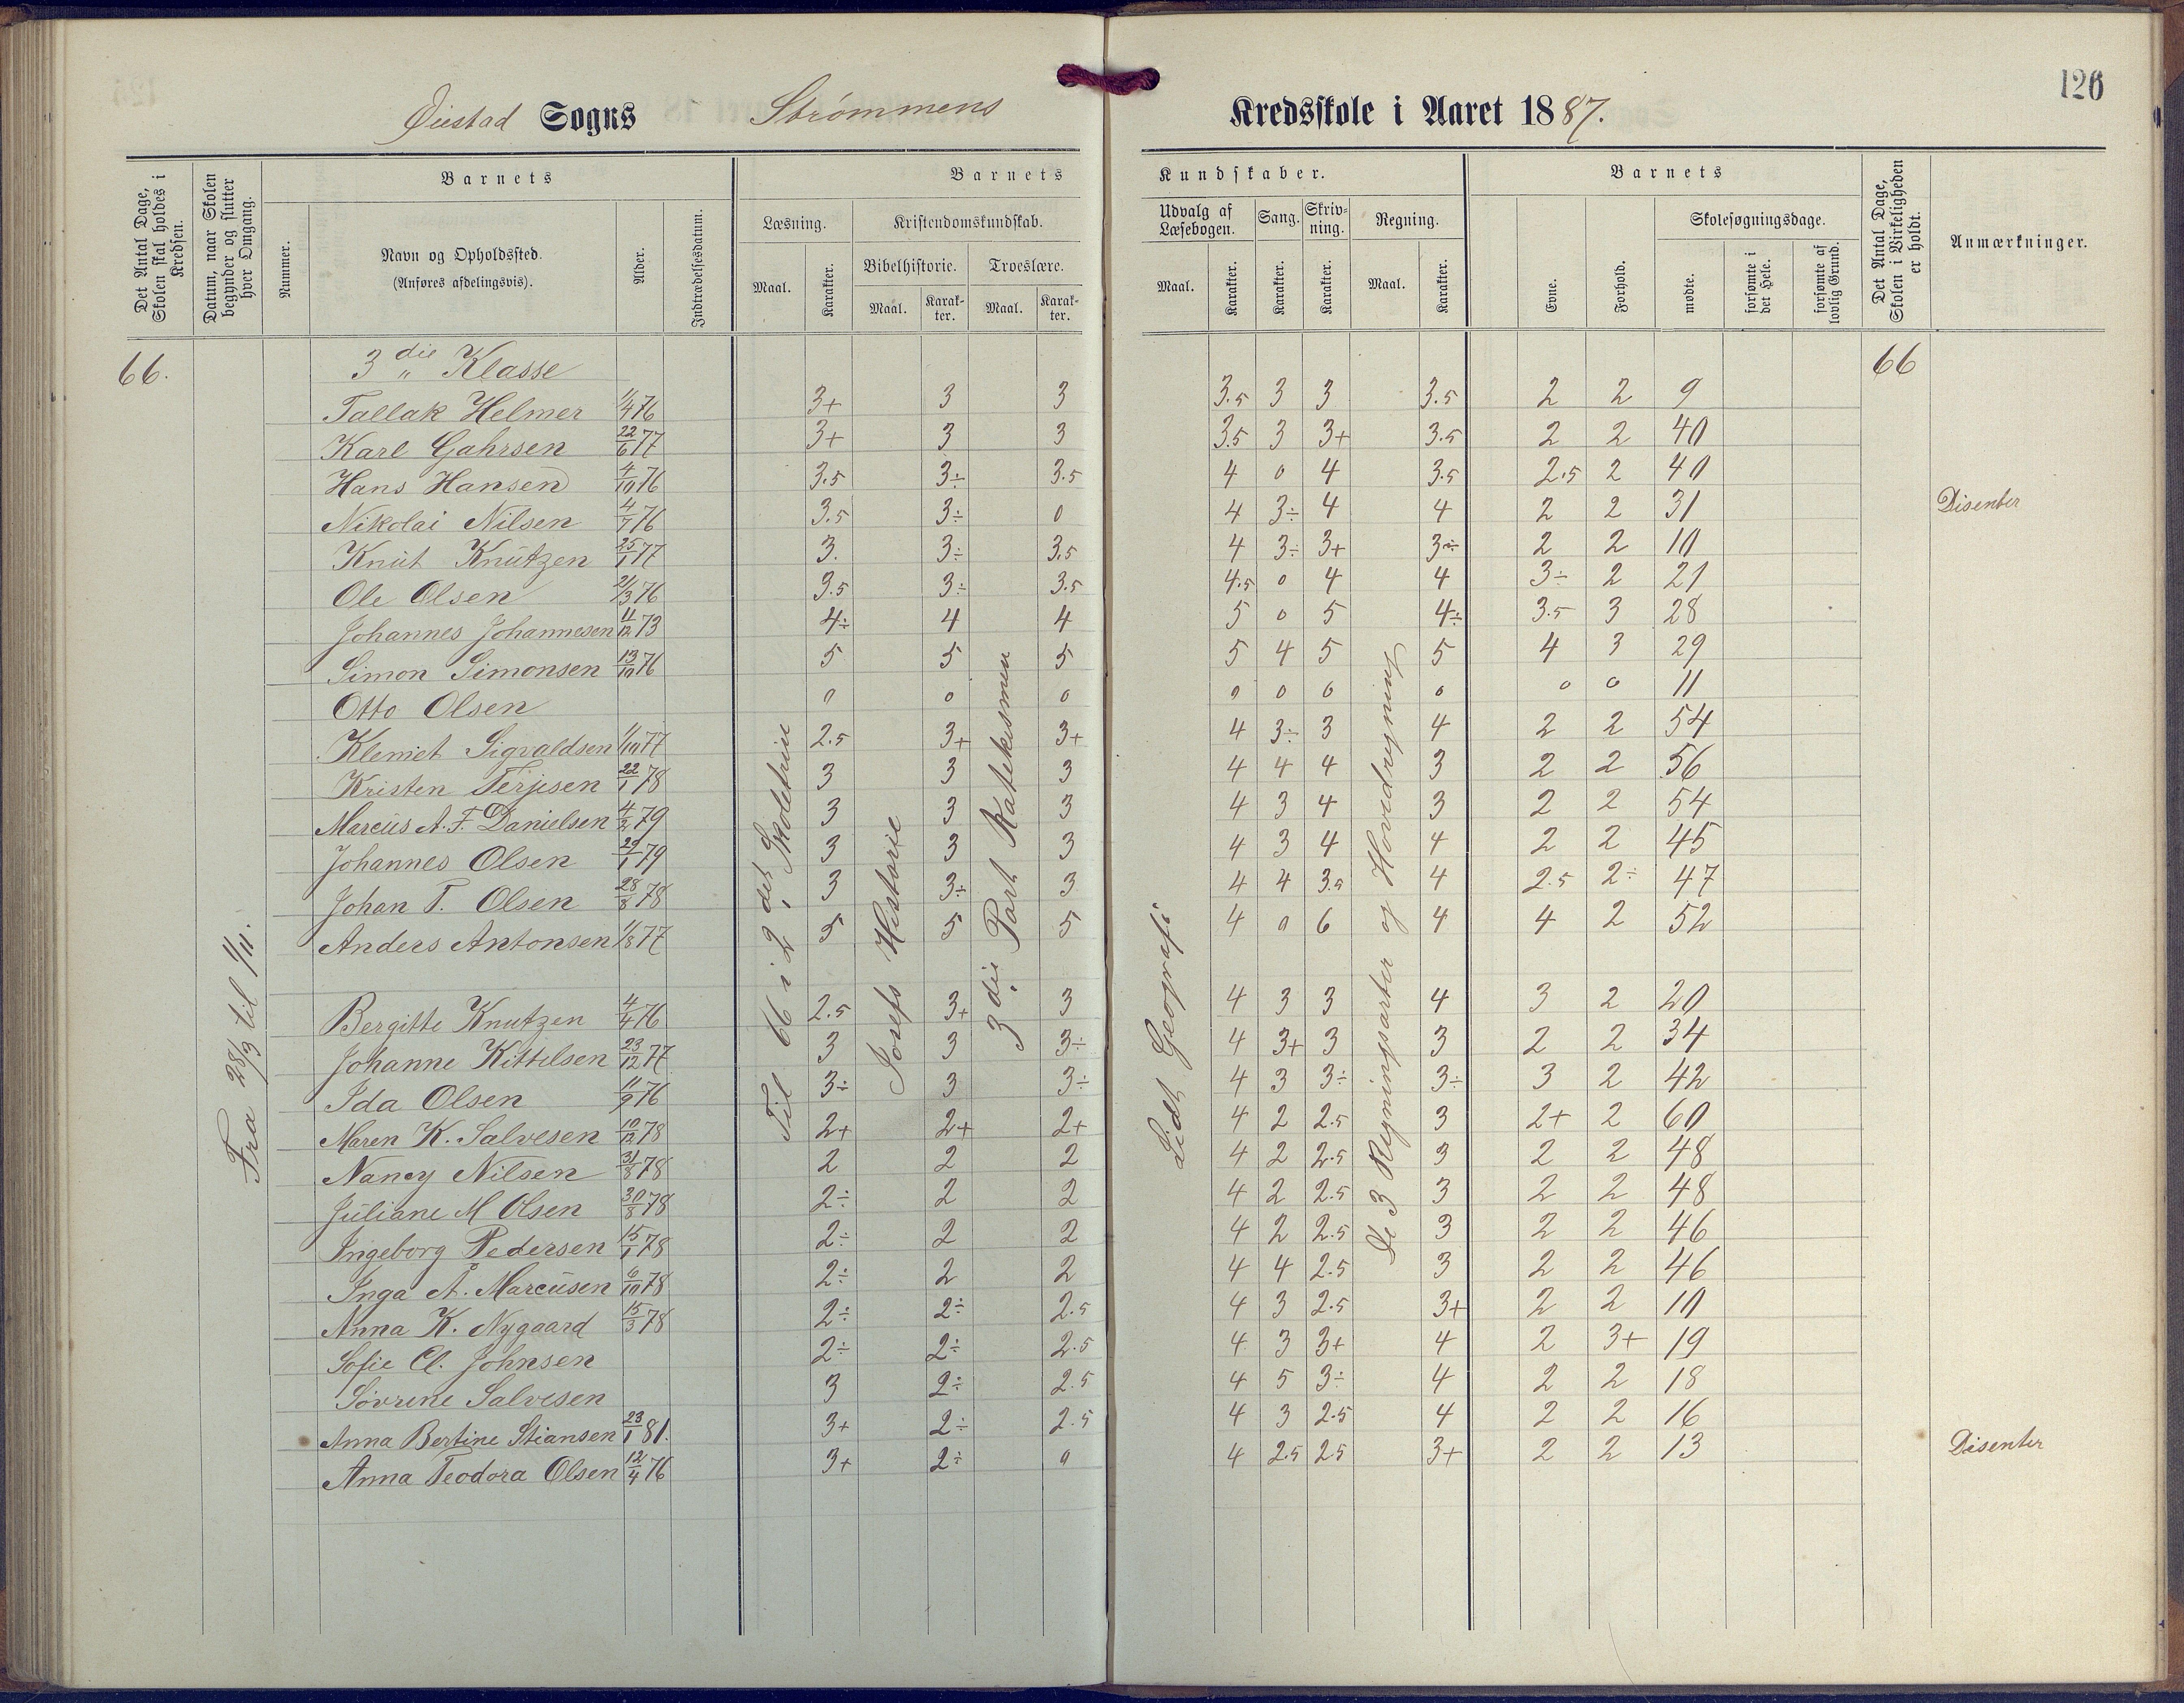 126
Øiestad Sogns Strømmens Kredsskole i Aaret 1887.
Det Antal Dage, Skolen skal holdes i Kredsen.
Datum, naar Skolen begynder og slutter hver Omgang.
Nummer.
Barnets
Navn og Opholdssted.
(Anføres afdelingsvis).
Alder.
Indtrædelsesdatum.
Barnets Kundskaber.
Læsning. Kristendomskundskab. Udvalg af Læsebogen. Sang. Skrivning. Regning.
Bibelhistorie. Troeslære.
Maal. Karakter. Maal. Karakter. Maal. Karakter. Maal. Karakter. Karakter. Karakter. Maal. Karakter.
Barnets
Evne. Forhold. Skolesøgningsdage.
mødte. forsømte i det Hele. forsømte af lovlig Grund.
Det Antal Dage, Skolen i Virkeligheden er holdt.
Anmærkninger.
66. 3die Klasse 66
Tallak Helmer 1/4 76 3+ 3 3 3.5 3 3 3.5 2 2 9
Karl Gahrsen 22/6 77 3+ 3 3 3.5 3 3+ 3.5 2 2 40
Hans Hansen 4/10 76 3.5 3÷ 3.5 4 0 4 3.5 2.5 2 40
Nikolai Nilsen 4/7 76 3.5 3÷ 0 4 3÷ 4 4 2 2 31 Disenter
Knut Knutzen 25/1 77 3. 3÷ 3.5 4 3÷ 3+ 3÷ 2 2 10
Ole Olsen 21/3 76 3.5 3÷ 3.5 4.5 0 4 4 3÷ 2 21
Johannes Johannesen 11/12 73 4÷ 4 4 5 0 5 4÷ 3.5 3 28
Simon Simonsen 13/10 76 5 5 5 5 4 5 5 4 3 29
Otto Olsen 0 0 0 0 0 0 0 0 0 11
Klemet Sigvaldsen 1/10 77 2.5 3+ 3+ 4 3÷ 3 4 2 2 54
Kristen Terjesen 22/1 78 3 3 3 4 4 4 3 2 2 56
Marcus A. F. Danielsen 4/2 79 3 3 3 4 3 4 3 2 2 54
Johannes Olsen 29/1 79 3 3 3 4 3 4 4 2 2 45
Johan T. Olsen 28/8 78 3 3÷ 3 4 4 3.5 4 2.5 2÷ 47
Anders Antonsen 1/8 77 5 5 5 4 0 6 4 4 2 52
Bergitte Knutzen 4/4 76 2.5 3+ 3 4 3 3 4 3 2 20
Johanne Kittelsen 23/12 77 3 3 3÷ 4 3+ 3 3 2 2 34
Ida Olsen 11/9 76 3÷ 3 3÷ 4 3 3÷ 3÷ 3 2 42
Maren K. Salvesen 10/12 78 2+ 2+ 2+ 4 2 2.5 3 2+ 2 60
Nancy Nilsen 31/8 78 2 2 2 4 2 2.5 3 2 2 48
Juliane M Olsen 30/8 78 2÷ 2 2 4 2 2.5 3 2 2 48
Ingeborg Pedersen 15/1 78 2÷ 2 2 4 2 2.5 3 2 2 46
Inga A. Marcusen 6/10 78 2÷ 2 2 4 4 2.5 3 2 2 46
Anna K. Nygaard 15/3 78 2÷ 2÷ 2.5 4 3 2.5 3+ 2 2 10
Sofie Cl. Johnsen 2÷ 2÷ 2.5 4 3 3+ 4 2 3+ 19
Sovrene Salvesen 3 2÷ 2.5 4 5 3÷ 4 2 2 18
Anna Bertine Stiansen 23/1 81. 3+ 2÷ 2.5 4 3 2.5 4 2 2 16
Anna Teodora Olsen 12/4 76 3+ 2÷ 0 4 2.5 25 3+ 2 2 13 Disenter
Fra 28/3 til 1/11.
Til 66 i 2det Skoletrin
Josefs Historie
3die Part Katekismen
Lidt Geografi
De 3 Regningsarter og Hovedregning